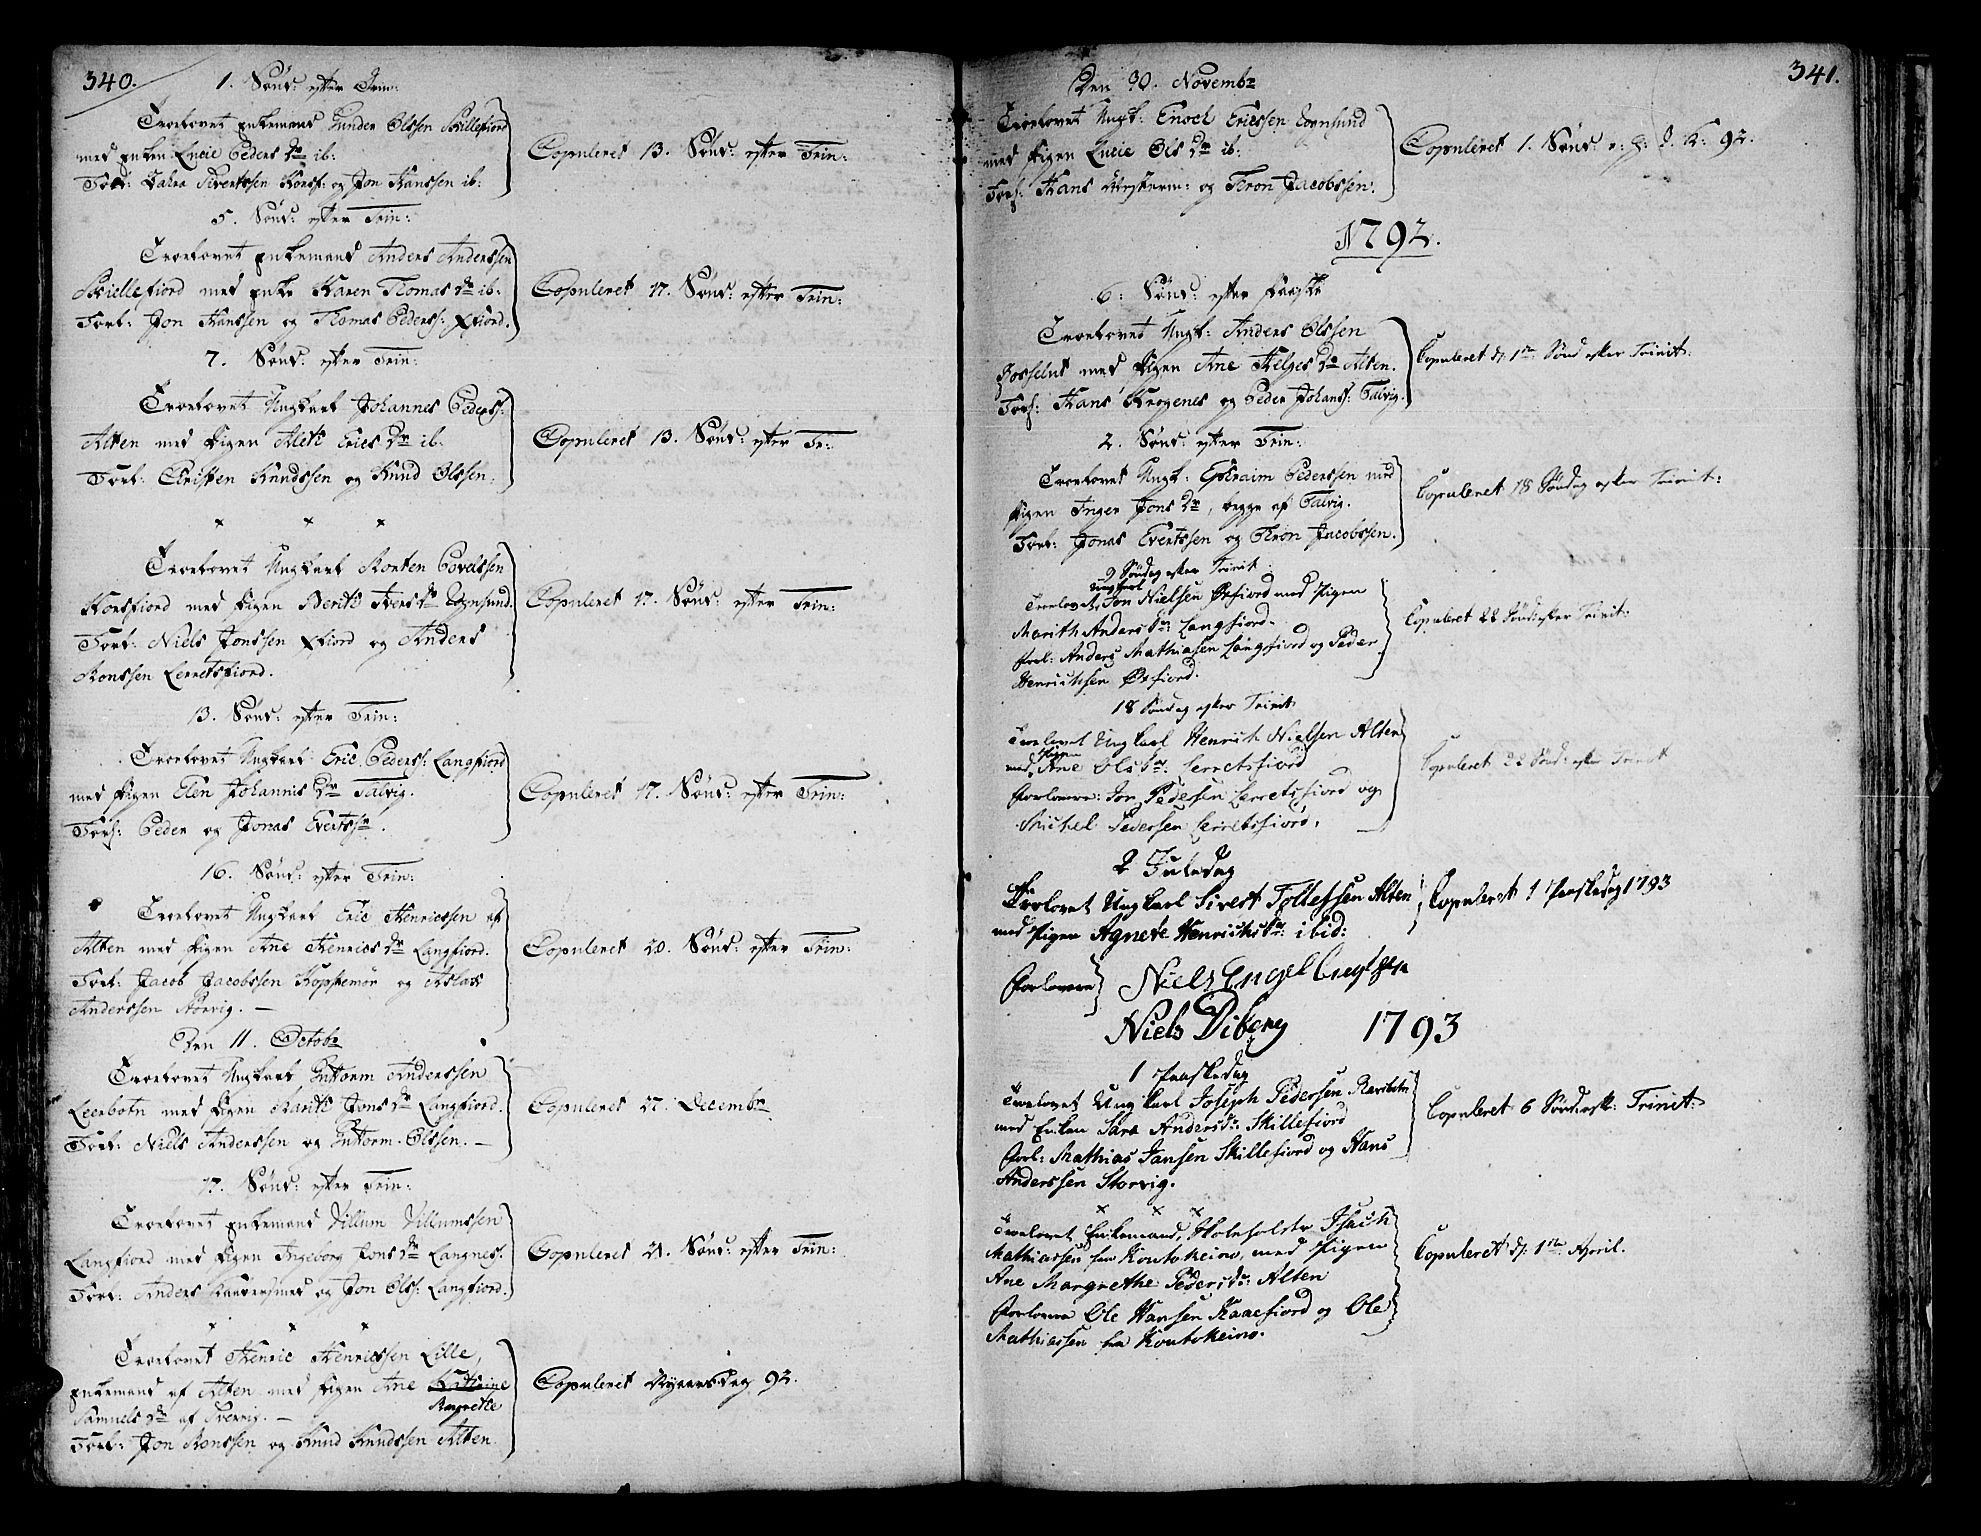 340.
1. Sønd: efter Trin:
Troelovet Enkemand Gunder Olssen Skillefiord
med Enken Lucie Peders Dr ib:
Forl: Sivertssen Korsf: og Jon Hanssen ib:
Copuleret 13. Sønd: efter Trin:
5. Sønd: efter Trin:
Troelovet Enkemand Anders Anderssen
Skillefiord med Enke Karen Thomas Dr ib:
Forl: Jon Hanssen og Thomas Pederss: Xfiord.
Copuleret 17. Sønd: efter Trin:
7. Sønd: efter Trin:
Troelovet Ungkarl Johannes Pederss:
Alten med Pigen Aleth Erics Dr ib:
Forl: Christen Knudssen og Knud Olssen.
Copuleret 13. Sønd: efter Tr:
x x x
Troelovet Ungkarl Morten Povelssen
Korsfiord med Pigen Berith Ivers Dr Rognsund.
Forl: Niels Jonssen Xfiord og Anders
Monssen Lerretsfiord.
Copuleret 17. Sønd: efter Trin:
13. Sønd: efter Trin:
Troelovet Ungkarl Eric Pederss: Langfiord
med Pigen Elen Johannis Dr Talvig.
Forl: Peder og Jonas Evertssn.
Copuleret 17. Sønd: efter Trin:
16. Sønd: efter Trin:
Troelovet Ungkarl Eric Henricssen af
Alten med Pigen Ane Henrics Dr Langfiord.
Forl: Jacob Jacobssen Koppemør og Aslak
Anderssen Storvig. —
Copuleret 20. Sønd: efter Trin:
Den 11. Octobr
Troelovet Ungkarl Guttorm Anderssen
Leerbotn med Pigen Marith Jons Dr Langfiord.
Forl: Niels Anderssen og Guttorm Olssen. —
Copuleret 27. Decembr
17. Sønd: efter Trin:
Troelovet Enkemand Villum Villumssen
Langfiord med Pigen Ingeborg Jons Dr Langnes:
Forl: Anders og Jon Olss: Langfiord.
Copuleret 21. Sønd: efter Trin:
x x x
Troelovet Henric Henricssen Lille,
Enkemand af Alten med Pigen Ane Kathrine
Margrethe
Samuels Dr af Storvig. —
Forl: Jon Monssen og Knud Knudssen Alten.
Copuleret Nyaarsdag 92.
341.
Den 30. Novembr
Troelovet Ungk: Enoch Ericssen Rognsund
med Pigen Lucie Ols Dr ib:
Forl: Hans og Thron Jacobssen.
Copuleret 1. Sønd: e: H: 3. K: 92.
1792.
6: Sønd: efter Paaske
Troelovet Ungk: Anders Olssen
Bosselut med Pigen Ane Helges Dr Alten.
Forl: Hans Krogenes og Peder Johanss: Talvig.
Copuleret d. 1ste Sønd efter Trinit:
2. Sønd: efter Trin:
Troelovet Ungk: Ephraim Pederssen med
Pigen Inger Jons Dr, begge af Talvig.
Forl: Jonas Evertssen og Thron Jacobssen.
Copuleret 18 Søndag efter Trinit:
9 Søndag efter Trinit
Ungkarl
Troelovet Jon Nielsen Øxfiord med Pigen
Marith Anders Dr: Langfiord.
Forl: Anders Mathiasen Langfiord og Peder
Henrichsen Øxfiord.
Copuleret 22 Sønd: efter Trinit:
18 Søndag efter Trinit
Troelovet Ungkarl Henrich Nielsen Alten
Pigen
med Ane Ols Dr: Lerretsfiord
Forlovere: Jon Pedersen Lerretsfiord og
Michel Pedersen Lerretsfiord.
Copuleret 22 Sønd: efter Trinit
2 Juledag
Troelovet Ungkarl Sivert Tollefsen Alten
med Pigen Agnete Henrichs Dr: ibid:
Copuleret 1 Paaskedag 1793
Forlovere Niels Engelbregtsen
Niels Diberg
1793
1 Paaskedag
Troelovet Ungkarl Joseph Pedersen Ravibotn
med Enken Sara Anders Dr: Skillefiord
Forl: Mathias Jansen Skillefiord og Hans
Anderssen Storvig.
Copuleret 6 Sønd: eft: Trinit:
x x x
Troelovet Enkemand, Isach
Mathiassen fra Koutokeino, med Pigen
Ane Margrethe Peders Dr: Alten
Forlovere Ole Hansen Kaaefiord og Ole
Mathiassen fra Koutokeino.
Copuleret d. 1ste April.